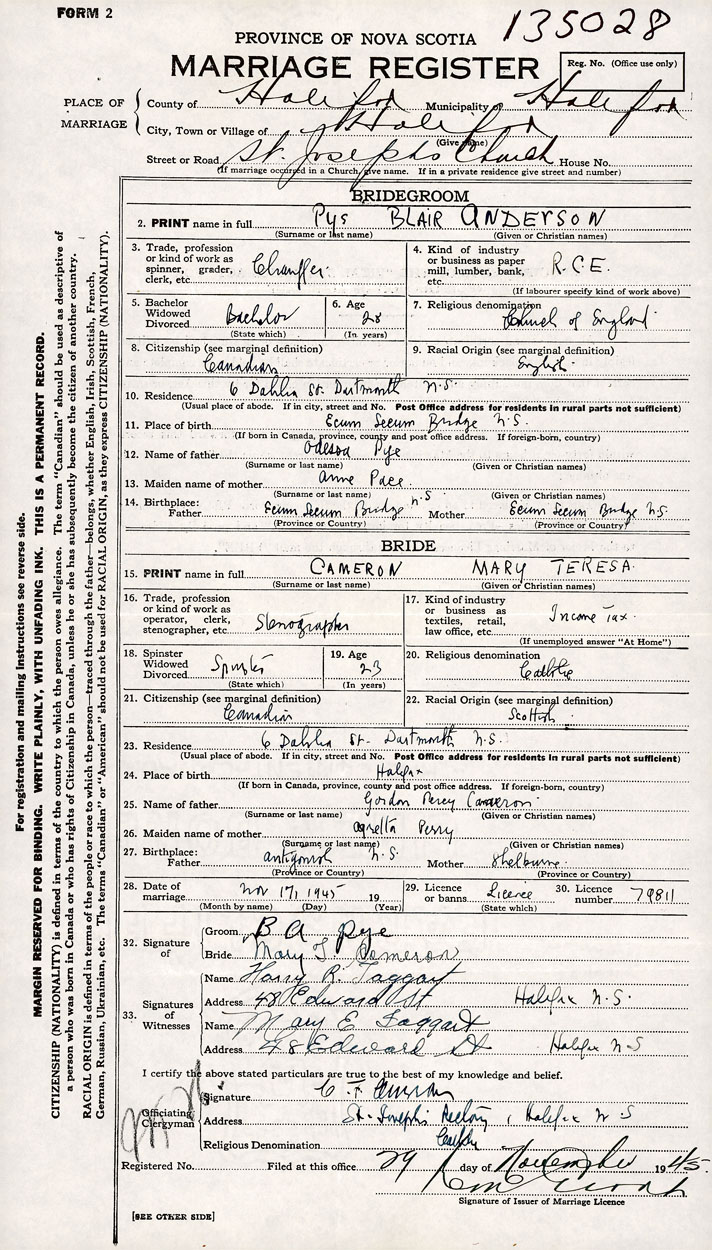 FORM 2
135028
PROVINCE OF NOVA SCOTIA
MARRIAGE REGISTER
Reg. No. (Office use only)
PLACE OF MARRIAGE
County of Halifax Municipality of Halifax
City, Town or Village of Halifax
(Give name)
Street or Road St. Josephs Church House No.
(If marriage occurred in a Church, give name. If in a private residence give street and number)
BRIDEGROOM
2. PRINT name in full Pye BLAIR ANDERSON
(Surname or last name) (Given or Christian names)
3. Trade, profession or kind of work as spinner, grader, clerk, etc. Chauffer
4. Kind of industry or business as paper mill, lumber, bank, etc. R.C.E.
(If labourer specify kind of work above)
5. Bachelor Widowed Divorced Bachelor
(State which)
6. Age 28
(In years)
7. Religious denomination Church of England
8. Citizenship (see marginal definition) Canadian
9. Racial Origin (see marginal definition) English
10. Residence 6 Dahlia St. Dartmouth N.S.
(Usual place of abode. If in city, street and No. Post Office address for residents in rural parts not sufficient)
11. Place of birth Ecum Secum Bridge N.S.
(If born in Canada, province, county and post office address. If foreign-born, country)
12. Name of father Odessa Pye
(Surname or last name) (Given or Christian names)
13. Maiden name of mother Anne Pace
(Surname or last name) (Given or Christian names)
14. Birthplace: Father Ecum Secum Bridge N.S Mother Ecum Secum Bridge N.S.
(Province or Country) (Province or Country)
BRIDE
15. PRINT name in full CAMERON MARY TERESA
(Surname or last name) (Given or Christian names)
16. Trade, profession or kind of work as operator, clerk, stenographer, etc. Stenographer
17. Kind of industry or business as textiles, retail, law office, etc. Income Tax
(If unemployed answer "At Home")
18. Spinster Widowed Divorced Spinster
(State which)
19. Age 23
(In years)
20. Religious denomination Catholic
21. Citizenship (see marginal definition) Canadian
22. Racial Origin (see marginal definition) Scottish
23. Residence 6 Dahlia St. Dartmouth N.S.
(Usual place of abode. If in city, street and No. Post Office address for residents in rural parts not sufficient)
24. Place of birth Halifax
(If born in Canada, province, county and post office address. If foreign-born, country)
25. Name of father Gordon Percy Cameron
(Surname or last name) (Given or Christian names)
26. Maiden name of mother Perry
(Surname or last name) (Given or Christian names)
27. Birthplace: Father Antigonish N.S. Mother Shelburne
(Province or Country) (Province or Country)
28. Date of marriage Nov 17, 1945 19
(Month by name) (Day) (Year)
29. Licence or banns Licence
(State which)
30. Licence number 79811
32. Signature of
Groom B A Pye
Bride Mary T Cameron
33. Signatures of Witnesses
Name Harry R. Taggart
Address 48 Edward St Halifax N.S.
Name Mary E Taggart
Address 48 Edward St Halifax N S
I certify the above stated particulars are true to the best of my knowledge and belief.
Officiating Clergyman
Signature C. F.
Address St. Josephs Rectory, Halifax N S
Religious Denomination Catholic
Registered No. Filed at this office 29 day of November 1945
Signature of Issuer of Marriage Licence
[SEE OTHER SIDE]
For registration and mailing instructions see reverse side.
MARGIN RESERVED FOR BINDING. WRITE PLAINLY, WITH UNFADING INK. THIS IS A PERMANENT RECORD.
CITIZENSHIP (NATIONALITY) is defined in terms of the country to which the person owes allegiance. The term "Canadian" should be used as descriptive of
a person who was born in Canada or who has rights of Citizenship in Canada, unless he or she has subsequently become the citizen of another country.
RACIAL ORIGIN is defined in terms of the people or race to which the person—traced through the father—belongs, whether English, Irish, Scottish, French,
German, Russian, Ukrainian, etc. The terms "Canadian" or "American" should not be used for RACIAL ORIGIN, as they express CITIZENSHIP (NATIONALITY).